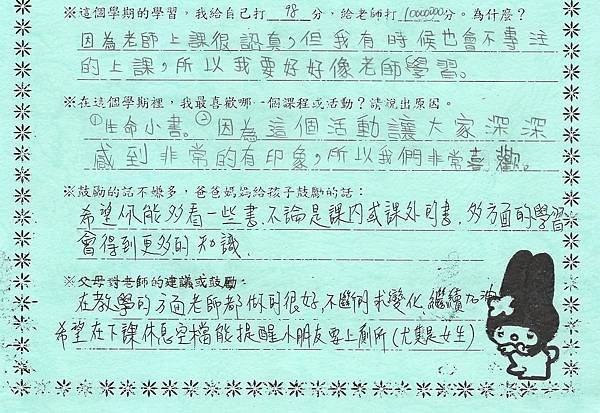 ※這個學期的學習，我給自己打 98 分，給老師打 10000000分。為什麼？
因為老師上課很認真，但我有時候也會不專注
的上課，所以我要好好像老師學習。
※在這個學期裡，我最喜歡哪一個課程或活動？請說出原因。
①生命小書。②因為這個活動讓大家深深
感到非常的有印象，所以我們非常喜歡。
※鼓勵的話不嫌多，爸爸媽媽給孩子鼓勵的話：
希望你能多看一些書.不論是課內或課外的書.多方面的學習
會得到更多的知識.
※父母對老師的建議或鼓勵：
在教學的方面老師都做的很好,不斷的求變化,繼續加油
希望在下課休息空檔能提醒小朋友要上廁所(尤其是女生)